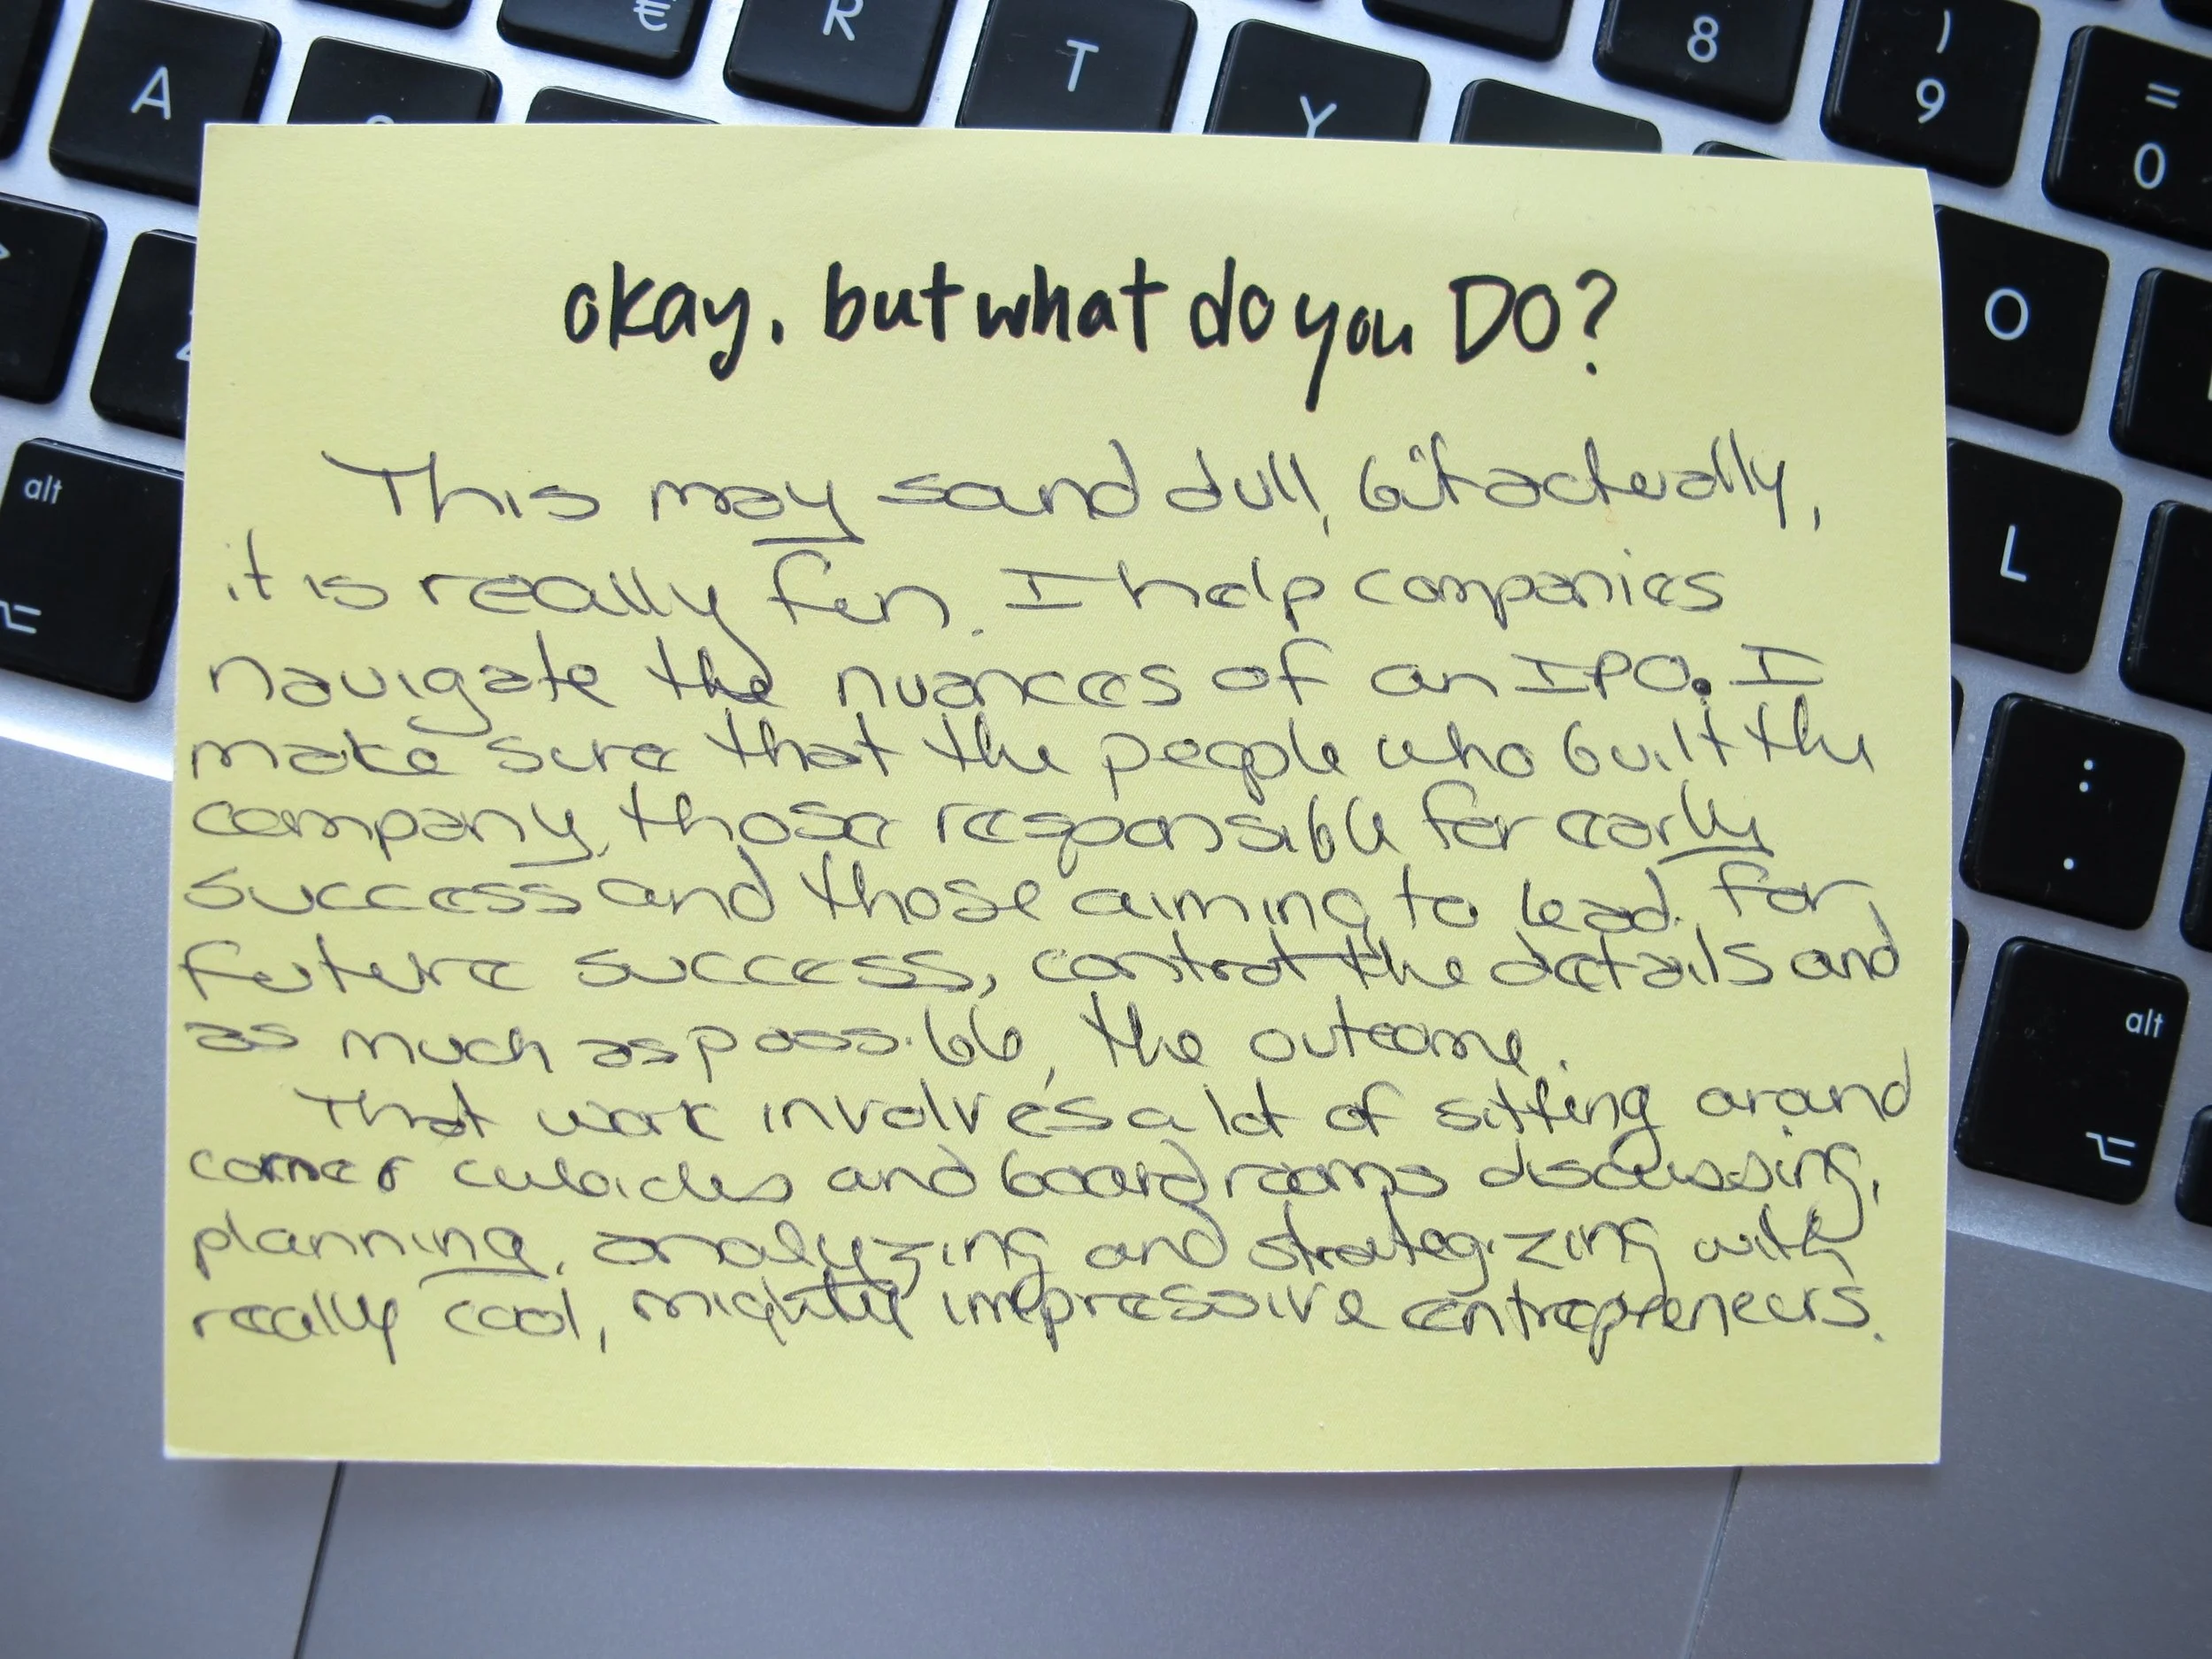 € R T 8 ) 9 = 0
A Y
O
L
alt
:
.
alt
okay, but what do you DO?
This may sound dull, but actually,
it is really fun. I help companies
navigate the nuances of an IPO. I
make sure that the people who built the
company, those responsible for early
success and those aiming to lead for
future success, control the details and
as much as possible, the outcome.
That work involves a lot of sitting around
corner cubicles and board rooms discussing,
planning, analyzing and strategizing with
really cool, mighty impressive entrepreneurs.